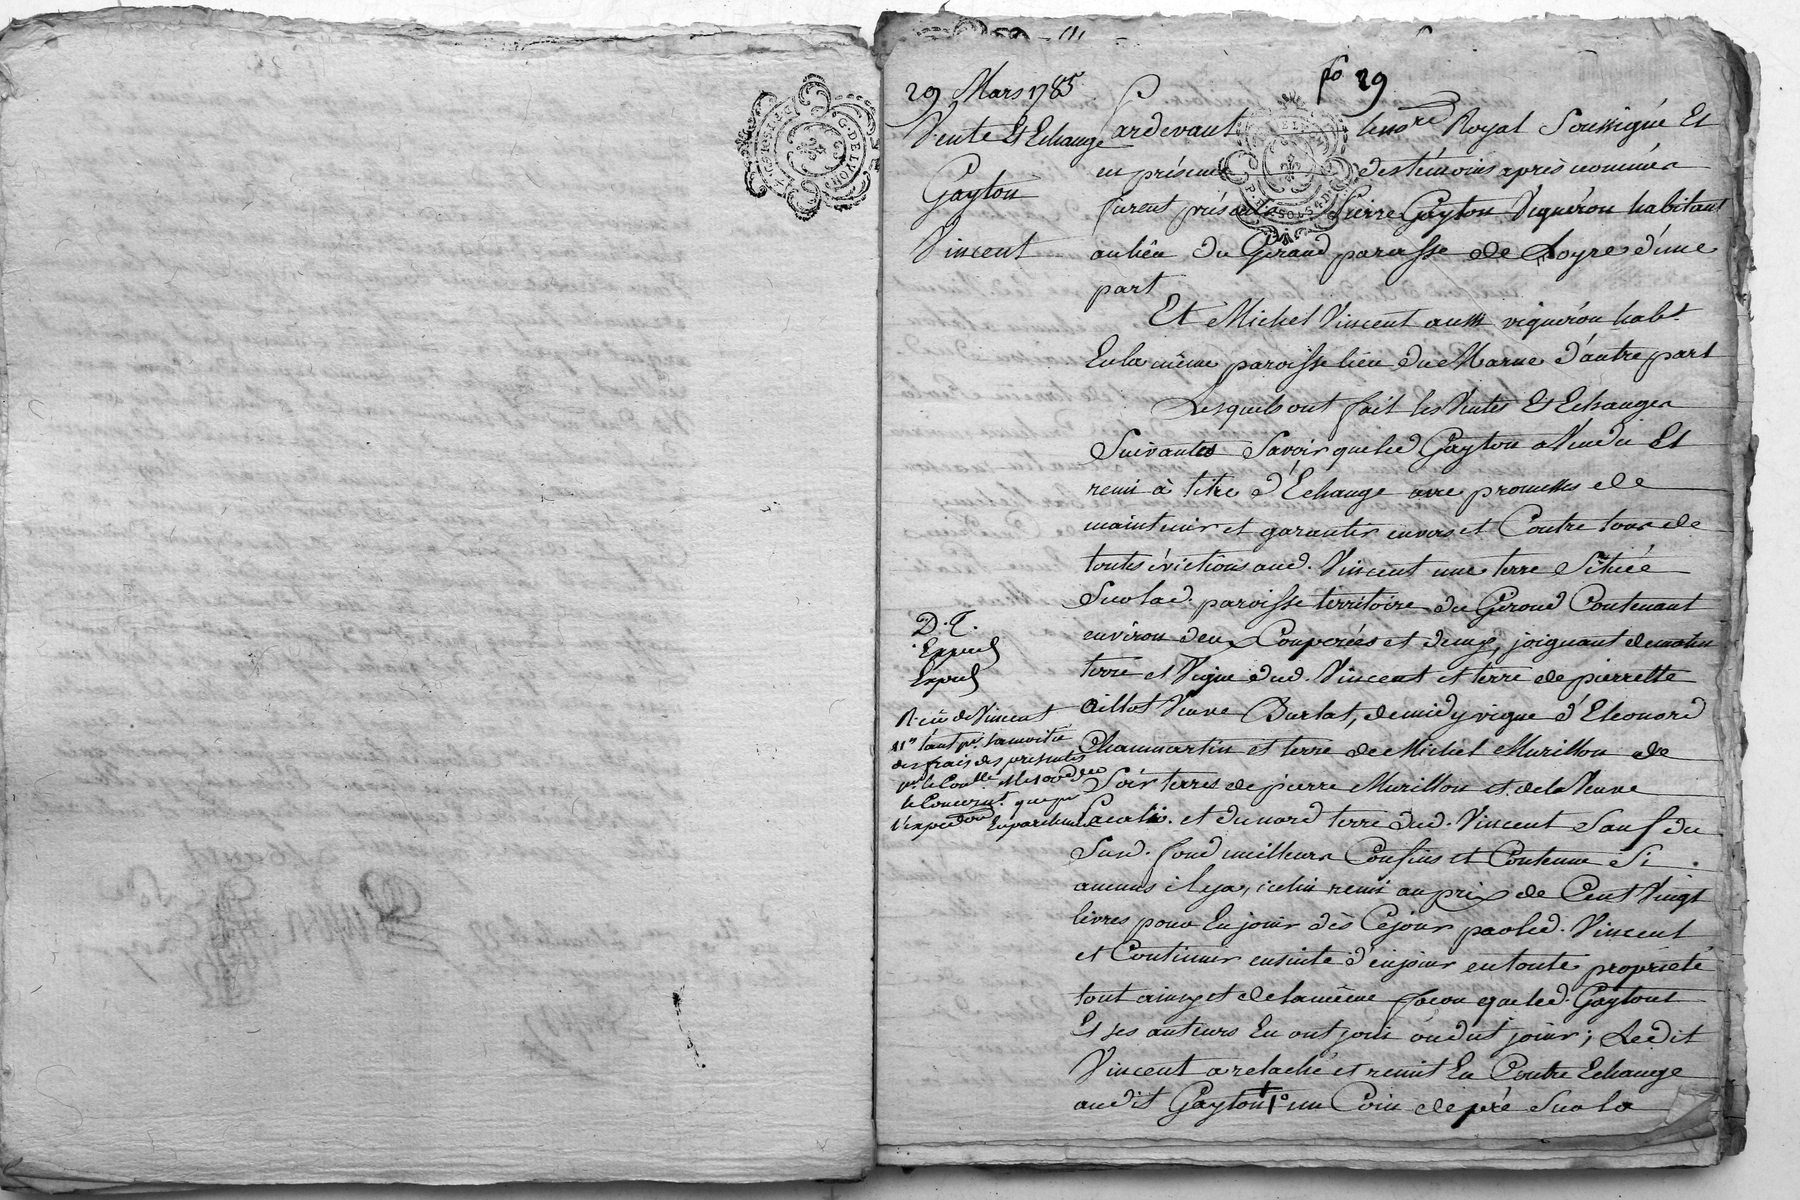 fo 29
29 Mars 1785
Vente Et Echange
Gayton
Vincent
Pardevant le nore Royal Soussigné Et
en présence des témoins après nommés
furent présents Pierre Gayton Vignéron habitant
au lieu du Giroud paroisse de Loyre d'une
part
Et Michel Vincent aussi vignéron habt
En la même paroisse lieu du Marne d'autre part
Lesquels ont fait les Ventes Et Echanges
Suivantes Savoir que led Gayton a Vendu Et
remi à titre d'Echange avec promesses de
maintenir et garantir envers et Contre tous de
toutes évictions aud. Vincent une terre Sitüée
Sur lad. paroisse territoire du Giroud Contenant
environ deux Couperées et demy, joignant de matin
terre et Vigne dud. Vincent et terre de pierrette
aillot Veuve Burlat, de midy vigne d'Eleonord
Chanmartin et terre de Michel Murillon de
Soir terres de pierre Murillon et de la Veuve
et du nord terre dud. Vincent Sauf du
Sud. fond meilleurs Confins et Contenue Si
aucuns il y a, icelui remi au prix de Cent Vingt
livres pour En jouir dès Cejour par led. Vincent
et Continuer ensuite d'en jouir en toute propriété
tout ainsy et de la même façon que led. Gayton
Et ses auteurs En ont joui ou dut jouir; Ledit
Vincent a relaché et remit En Contre Echange
audit Gayton + 1° un Coin de pré Sur la
D. C.
Expied
Expied
Recu de Vincent
11# tant pr. sa moitié
des frais des presentes
pr. le Conlle
le Concernt. que pr
l'expedon En parchemin
G. DE LYON